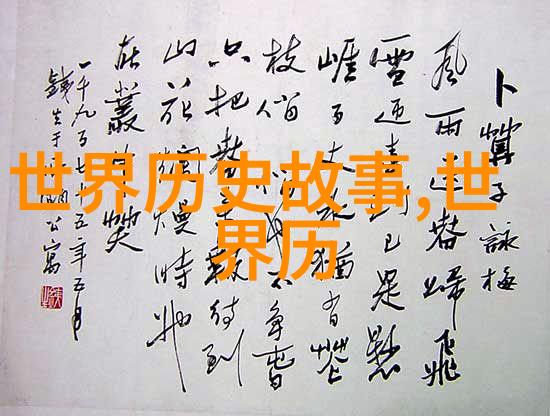 世界历史故事,世
界历
卜算子 詠梅
風雨送春歸飛
雪迎春到已是懸
崖百丈冰猶有花
枝俏俏也不爭春
只把春來報待到
山花爛熳時她
在叢中笑
一千九百七十五年五月
公寓